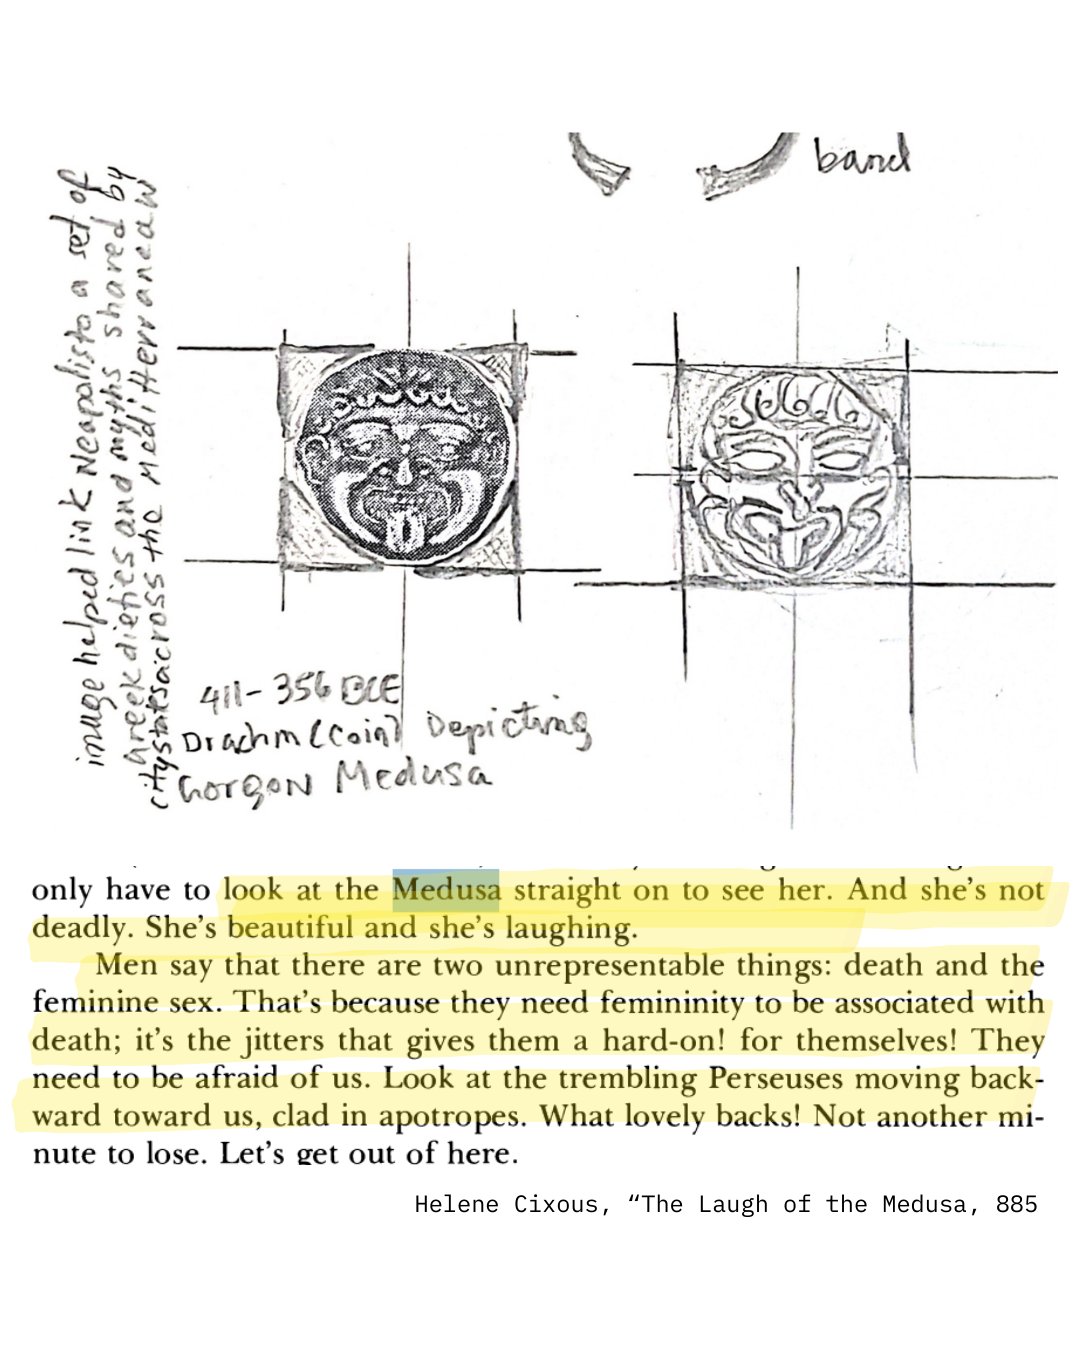 band
image helped link Neapolis to a set of
Greek dieties and myths shared by
citystates across the Mediterranean
411-356 BCE
Drachm (Coin) Depicting
Gorgon Medusa
only have to look at the Medusa straight on to see her. And she's not
deadly. She's beautiful and she's laughing.
Men say that there are two unrepresentable things: death and the
feminine sex. That's because they need femininity to be associated with
death; it's the jitters that gives them a hard-on! for themselves! They
need to be afraid of us. Look at the trembling Perseuses moving back-
ward toward us, clad in apotropes. What lovely backs! Not another mi-
nute to lose. Let's get out of here.
Helene Cixous, “The Laugh of the Medusa, 885